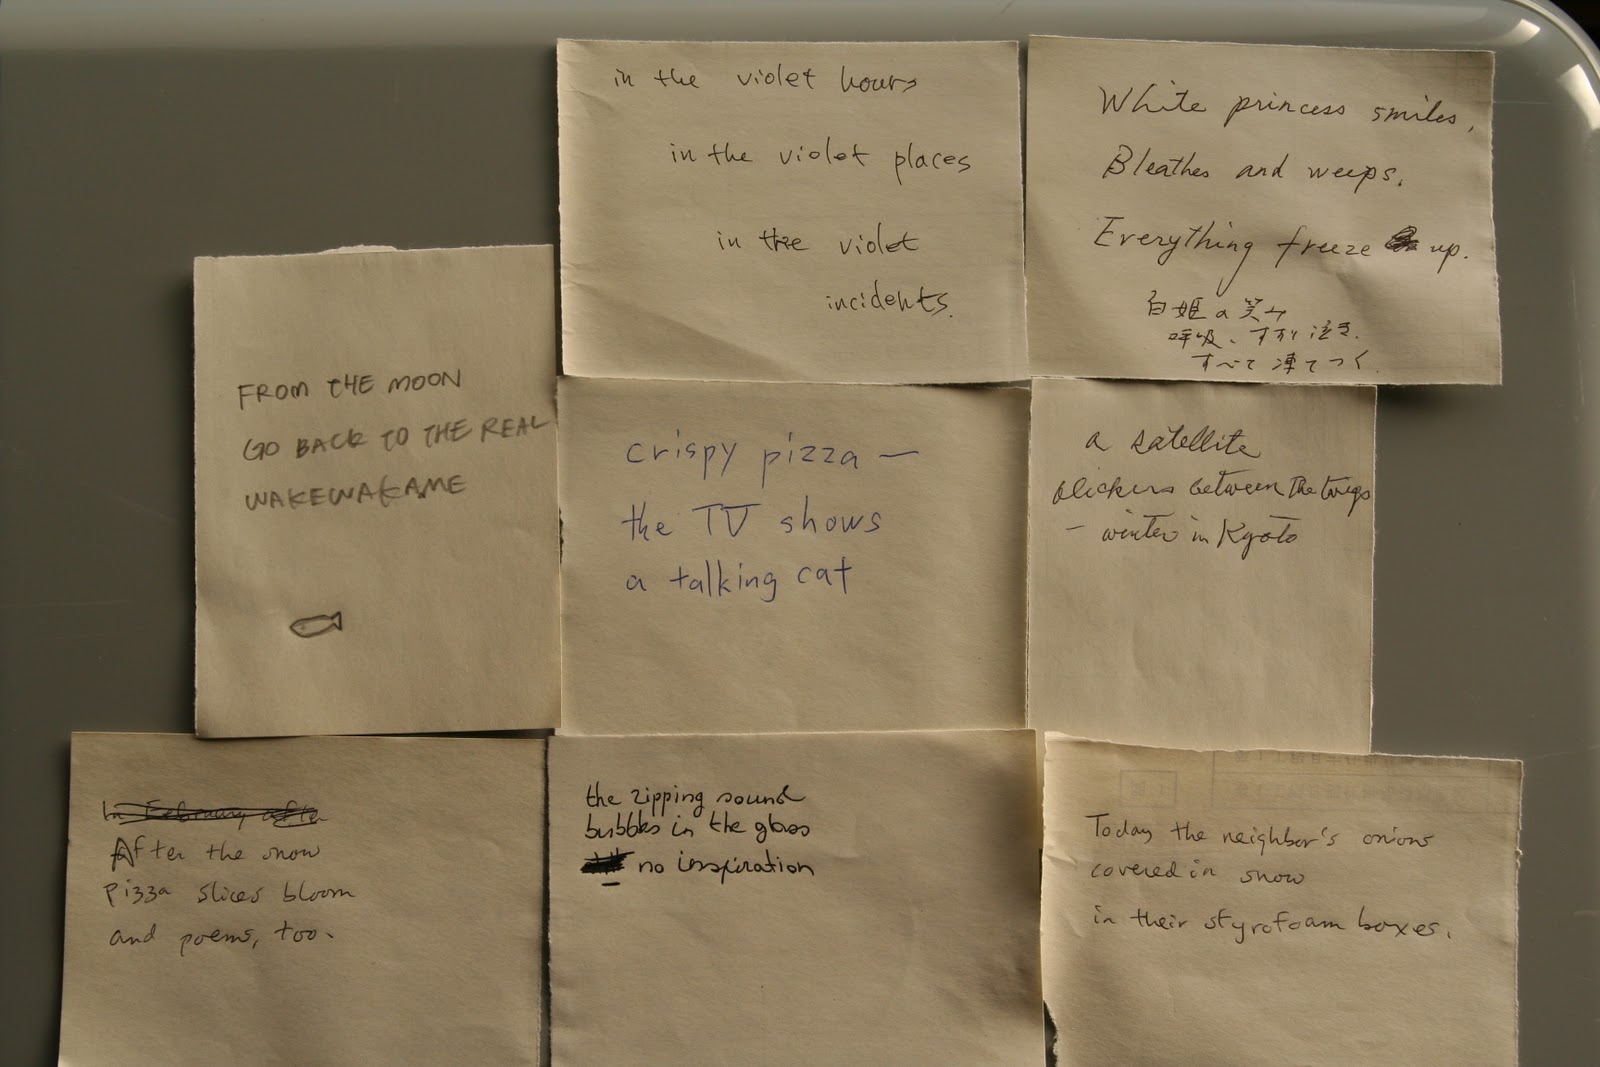 in the violet hours
in the violet places
in the violet
incidents.
White princess smiles,
Bleathes and weeps.
Everything freeze up.
白姫の笑み
呼吸、すすり泣き.
すべて凍てつく.
FROM THE MOON
GO BACK TO THE REAL
WAKEWAKAME
crispy pizza —
the TV shows
a talking cat
a satellite
blickers between the twigs
— winter in Kyoto
In February after
After the snow
Pizza slices bloom
and poems, too.
the zipping sound
bubbles in the glass
no inspiration
Today the neighbor's onions
covered in snow
in their styrofoam boxes.